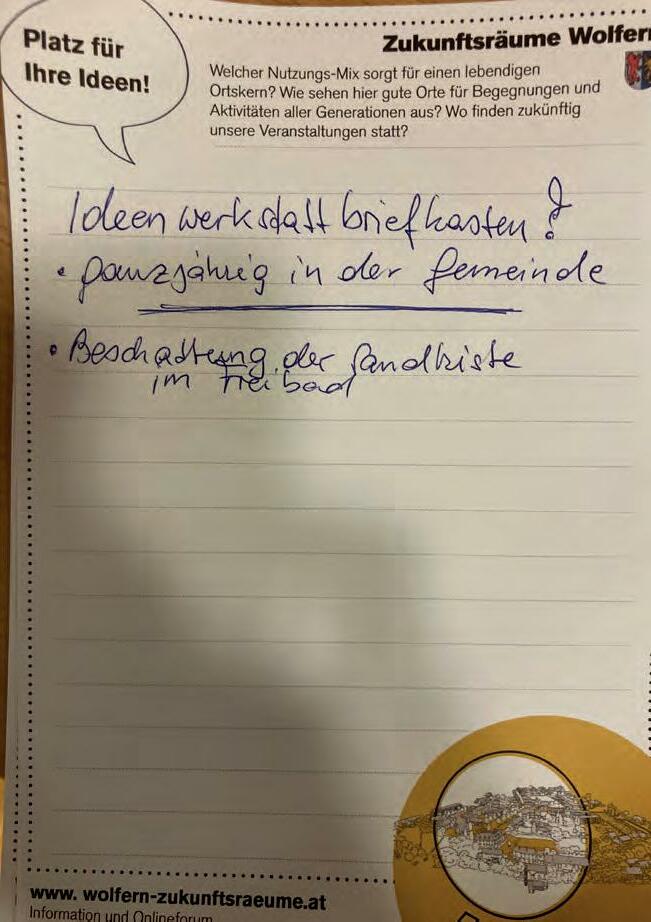 Platz für
Ihre Ideen!
Zukunftsräume Wolfern
Welcher Nutzungs-Mix sorgt für einen lebendigen
Ortskern? Wie sehen hier gute Orte für Begegnungen und
Aktivitäten aller Generationen aus? Wo finden zukünftig
unsere Veranstaltungen statt?
Ideenwerkstattbriefkasten!
• ganzjährig in der Gemeinde
• Beschattung der Sandkiste
im Freibad
www. wolfern-zukunftsraeume.at
Information und Onlineforum